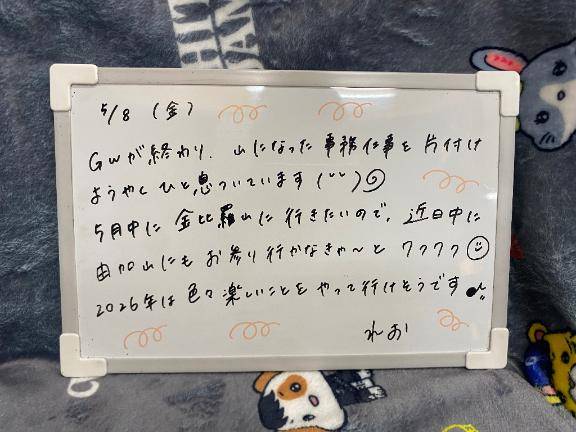 5/8 (金)
GWが終わり、山になった事務仕事を片付け
ようやくひと息ついています(˘˘)
5月中に金比羅山に行きたいので、近日中に
由加山にもお参り行かなきゃ〜とワクワク☺
2026年は色々楽しいことをやって行けそうです♪
れお